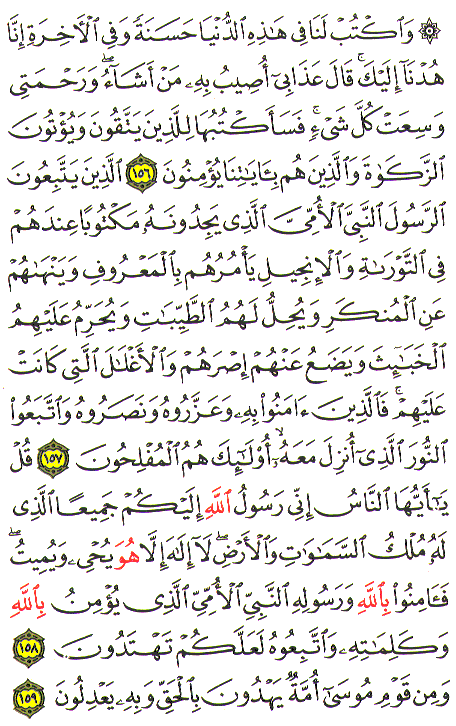 ۞ وَٱكْتُبْ لَنَا فِى هَٰذِهِ ٱلدُّنْيَا حَسَنَةً وَفِى ٱلْأَخِرَةِ إِنَّا
هُدْنَآ إِلَيْكَ ۚ قَالَ عَذَابِىٓ أُصِيبُ بِهِۦ مَنْ أَشَآءُ ۖ وَرَحْمَتِى
وَسِعَتْ كُلَّ شَىْءٍ ۚ فَسَأَكْتُبُهَا لِلَّذِينَ يَتَّقُونَ وَيُؤْتُونَ
ٱلزَّكَوٰةَ وَٱلَّذِينَ هُم بِـَٔايَٰتِنَا يُؤْمِنُونَ ١٥٦ ٱلَّذِينَ يَتَّبِعُونَ
ٱلرَّسُولَ ٱلنَّبِىَّ ٱلْأُمِّىَّ ٱلَّذِى يَجِدُونَهُۥ مَكْتُوبًا عِندَهُمْ
فِى ٱلتَّوْرَىٰةِ وَٱلْإِنجِيلِ يَأْمُرُهُم بِٱلْمَعْرُوفِ وَيَنْهَىٰهُمْ
عَنِ ٱلْمُنكَرِ وَيُحِلُّ لَهُمُ ٱلطَّيِّبَٰتِ وَيُحَرِّمُ عَلَيْهِمُ
ٱلْخَبَٰٓئِثَ وَيَضَعُ عَنْهُمْ إِصْرَهُمْ وَٱلْأَغْلَٰلَ ٱلَّتِى كَانَتْ
عَلَيْهِمْ ۚ فَٱلَّذِينَ ءَامَنُوا۟ بِهِۦ وَعَزَّرُوهُ وَنَصَرُوهُ وَٱتَّبَعُوا۟
ٱلنُّورَ ٱلَّذِىٓ أُنزِلَ مَعَهُۥٓ ۙ أُو۟لَٰٓئِكَ هُمُ ٱلْمُفْلِحُونَ ١٥٧ قُلْ
يَٰٓأَيُّهَا ٱلنَّاسُ إِنِّى رَسُولُ ٱللَّهِ إِلَيْكُمْ جَمِيعًا ٱلَّذِى
لَهُۥ مُلْكُ ٱلسَّمَٰوَٰتِ وَٱلْأَرْضِ ۖ لَآ إِلَٰهَ إِلَّا هُوَ يُحْىِۦ وَيُمِيتُ ۖ
فَـَٔامِنُوا۟ بِٱللَّهِ وَرَسُولِهِ ٱلنَّبِىِّ ٱلْأُمِّىِّ ٱلَّذِى يُؤْمِنُ بِٱللَّهِ
وَكَلِمَٰتِهِۦ وَٱتَّبِعُوهُ لَعَلَّكُمْ تَهْتَدُونَ ١٥٨
وَمِن قَوْمِ مُوسَىٰٓ أُمَّةٌ يَهْدُونَ بِٱلْحَقِّ وَبِهِۦ يَعْدِلُونَ ١٥٩